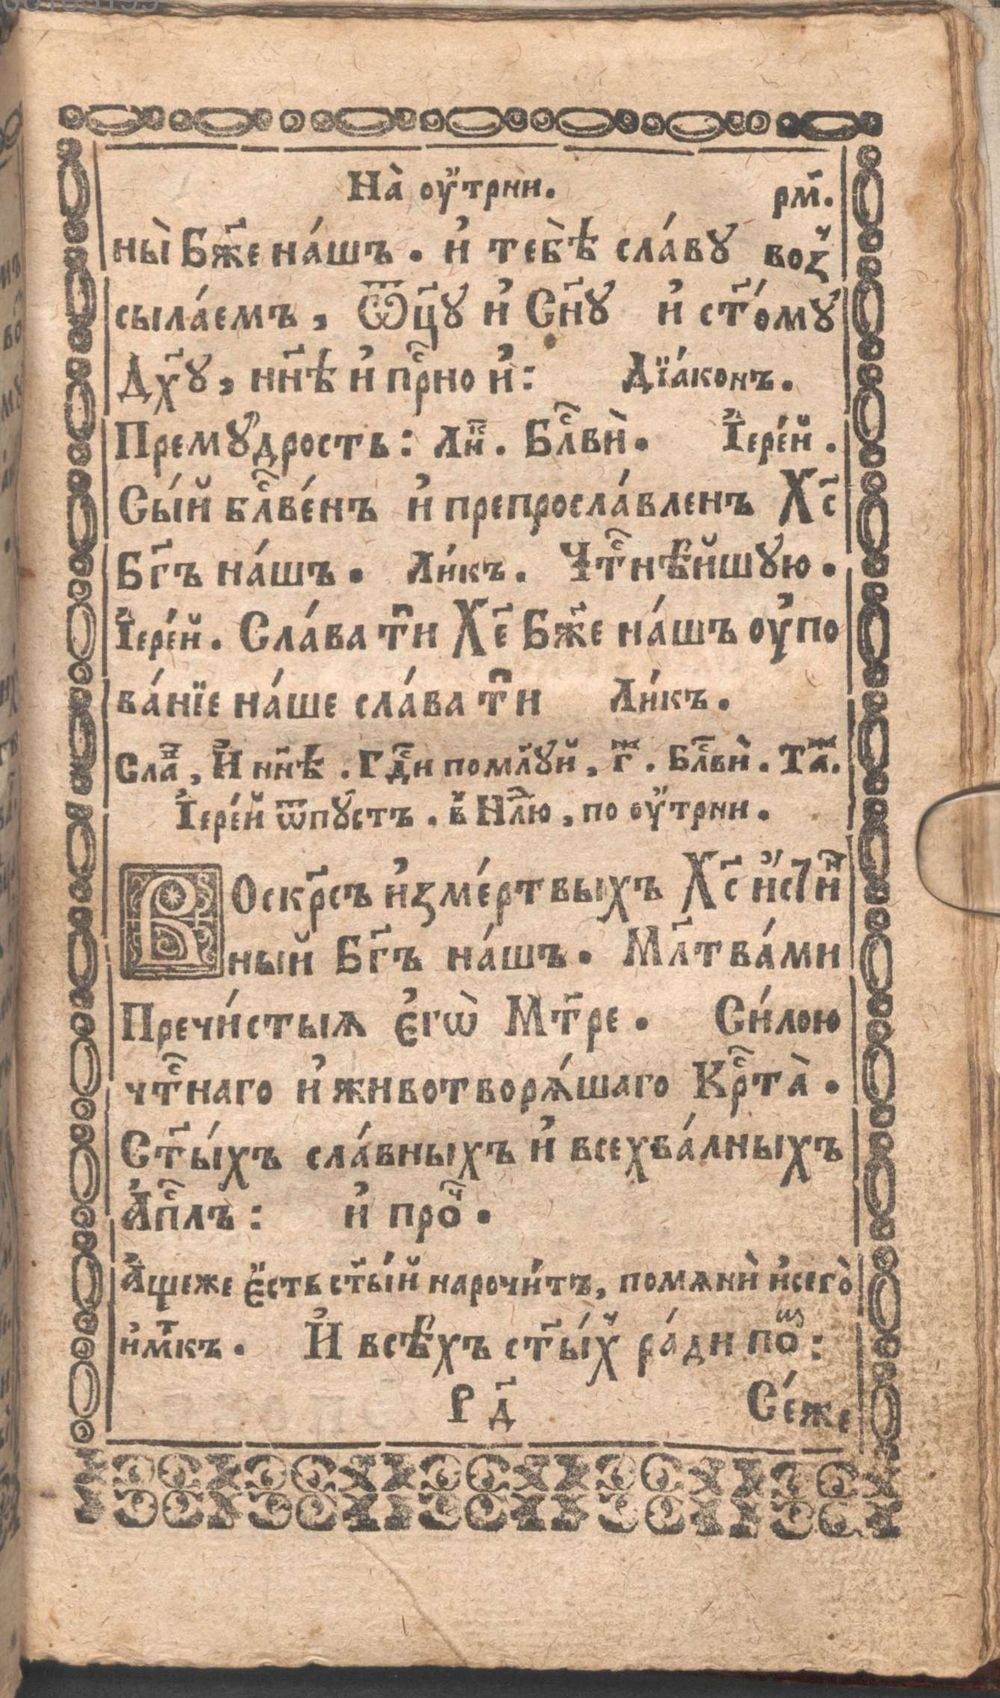 На̀ оу҆́трни. рм҃.
ны̀ Бж҃е на́шъ . и҆ тебѣ̀ сла́вꙋ воз̾
сыла́емъ , Ѿц҃ꙋ и҆ Сн҃ꙋ и҆ ст҃о́мꙋ
Дх҃ꙋ , нн҃ѣ и҆ пр҇но и҆ : Дїа́конъ .
Премꙋ́дрость : ли́к . Бл҇вѝ . І҆ере́й .
Сы́й бл҇ве́нъ и҆ препросла́вленъ Хс҃
Бг҃ъ на́шъ . Ли́къ . Чт҇нѣ́йшꙋю .
І҆ере́й . Сла́ва т҃и Хе҃ Бж҃е на́шъ оу҆по
ва́нїе на́ше сла́ва т҃и Ли́къ .
Сла́в , И҆ нн҃ѣ . Гд҇и помл҃ꙋй , г҃ . Бл҇вѝ . Та́ж .
І҆ере́й ѿпꙋ́стъ . в̾ Нл҃ю , по оу҆́трни .
Воскр҃съ и҆зме́ртвыхъ Хс҃ и҆́стин
ный Бг҃ъ на́шъ . Мл҃тва́ми
Пречи́стыѧ є҆гѡ̀ Мт҃ре . Си́лою
чт҇наго и҆ животворѧ́шаго Кр҇та̀ .
Ст҃ы́хъ сла́вныхъ и҆ всехва́лныхъ
А҆п҇лъ : и҆ про́ч .
А҆́щеже є҆́сть ст҃ы́й нарочи́тъ , помѧнѝ и҆сего̀
и҆м҃къ . И҆ всѣ́хъ ст҃ы́х̾ ра́ди по́ш :
Р д҃ Се́же